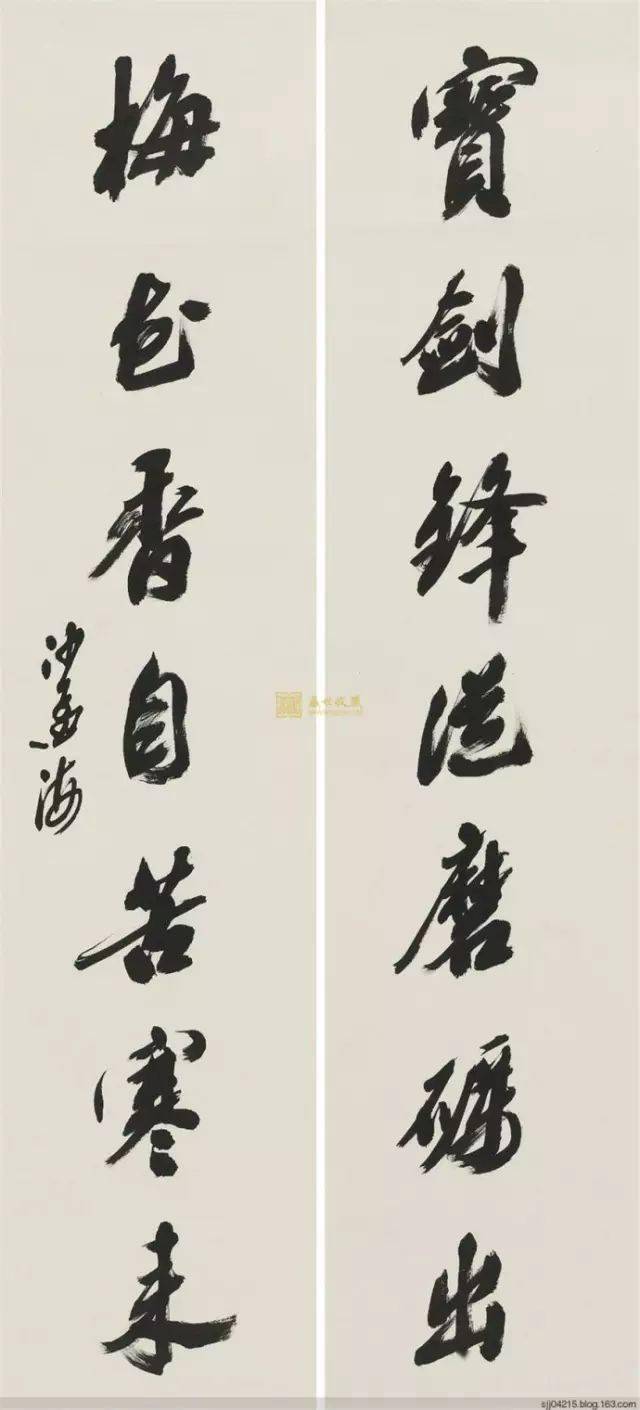 寶劍鋒從磨礪出
梅花香自苦寒來
沙孟海
盛世收藏
sjj04215.blog.163.com